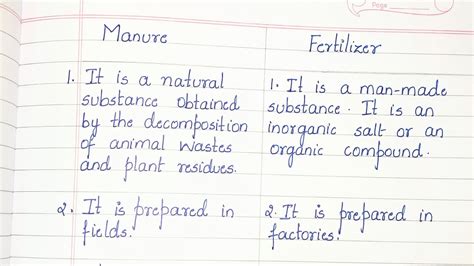 Page
Manure
Fertilizer
1. It is a natural
substance obtained
by the decomposition
of animal wastes
and plant residues.
1. It is a man-made
substance. It is an
inorganic salt or an
organic compound.
2. It is prepared in
fields.
2. It is prepared in
factories.